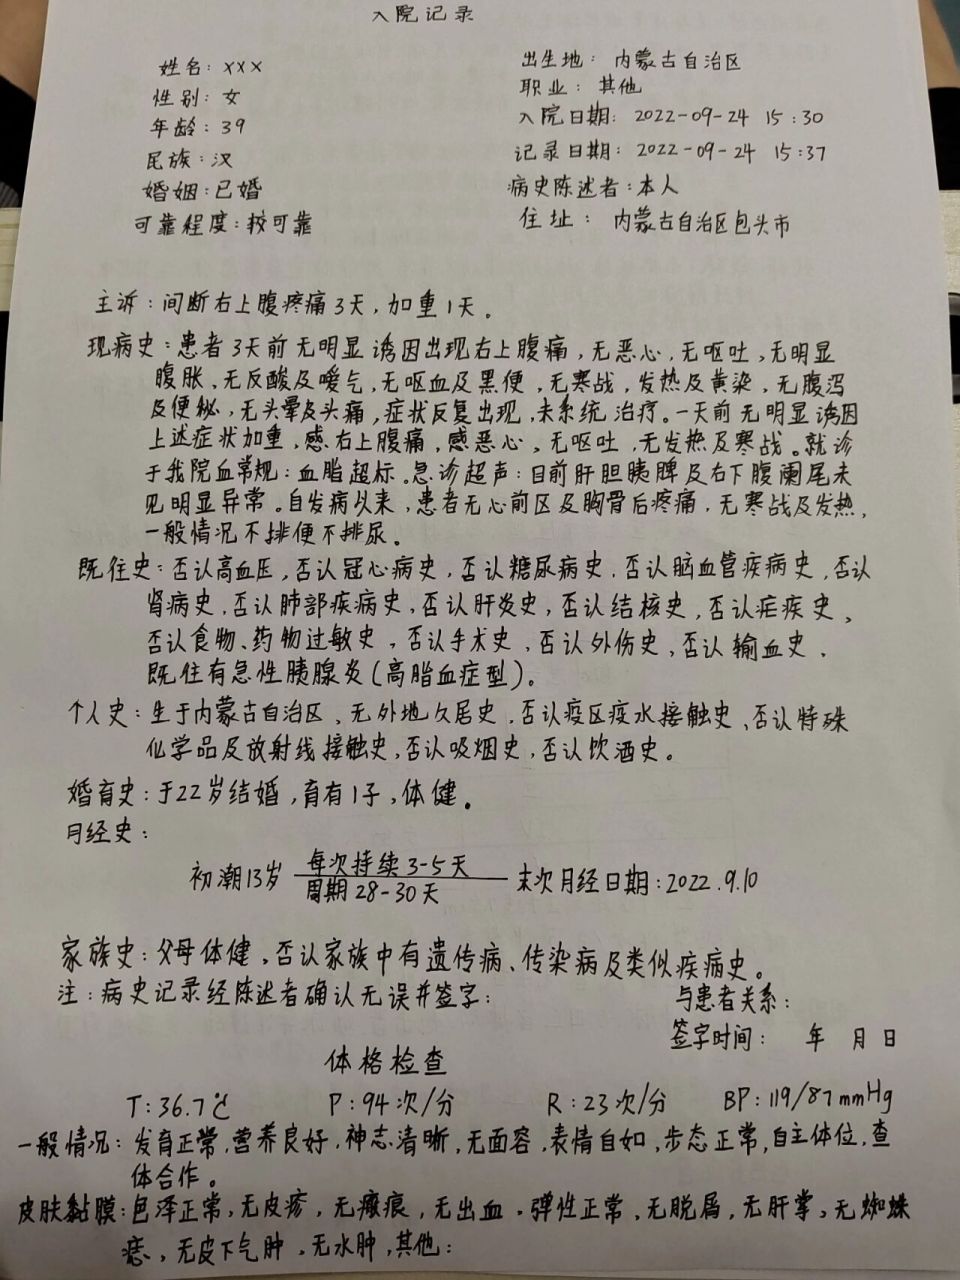 入院记录
姓名：XXX
性别：女
年龄：39
民族：汉
婚姻：已婚
可靠程度：较可靠
出生地：内蒙古自治区
职业：其他
入院日期：2022-09-24 15:30
记录日期：2022-09-24 15:37
病史陈述者：本人
住址：内蒙古自治区包头市
主诉：间断右上腹疼痛3天，加重1天。
现病史：患者3天前无明显诱因出现右上腹痛，无恶心，无呕吐，无明显
腹胀、无反酸及嗳气，无呕血及黑便，无寒战，发热及黄染，无腹泻
及便秘，无头晕及头痛，症状反复出现，未系统治疗。一天前无明显诱因
上述症状加重，感右上腹痛，感恶心，无呕吐，无发热及寒战。就诊
于我院血常规：血脂超标。急诊超声：目前肝胆胰脾及右下腹阑尾未
见明显异常。自发病以来，患者无心前区及胸骨后疼痛，无寒战及发热，
一般情况不排便不排尿。
既往史：否认高血压，否认冠心病史，否认糖尿病史，否认脑血管疾病史，否认
肾病史，否认肺部疾病史，否认肝炎史，否认结核史，否认疟疾史，
否认食物、药物过敏史，否认手术史，否认外伤史，否认输血史，
既往有急性胰腺炎（高脂血症型）。
个人史：生于内蒙古自治区、无外地久居史，否认疫区疫水接触史、否认特殊
化学品及放射线接触史，否认吸烟史，否认饮酒史。
婚育史：于22岁结婚，育有1子，体健。
月经史：
初潮13岁 每次持续3-5天 末次月经日期：2022.9.10
周期28-30天
家族史：父母体健，否认家族中有遗传病、传染病及类似疾病史。
注：病史记录经陈述者确认无误并签字：
与患者关系：
签字时间： 年 月 日
体格检查
T：36.7℃ P：94次/分 R：23次/分 BP：119/87mmHg
一般情况：发育正常，营养良好，神志清晰，无面容，表情自如，步态正常，自主体位，查
体合作。
皮肤黏膜：色泽正常，无皮疹，无瘢痕，无出血，弹性正常，无脱屑，无肝掌，无蜘蛛
痣，无皮下气肿，无水肿，其他：